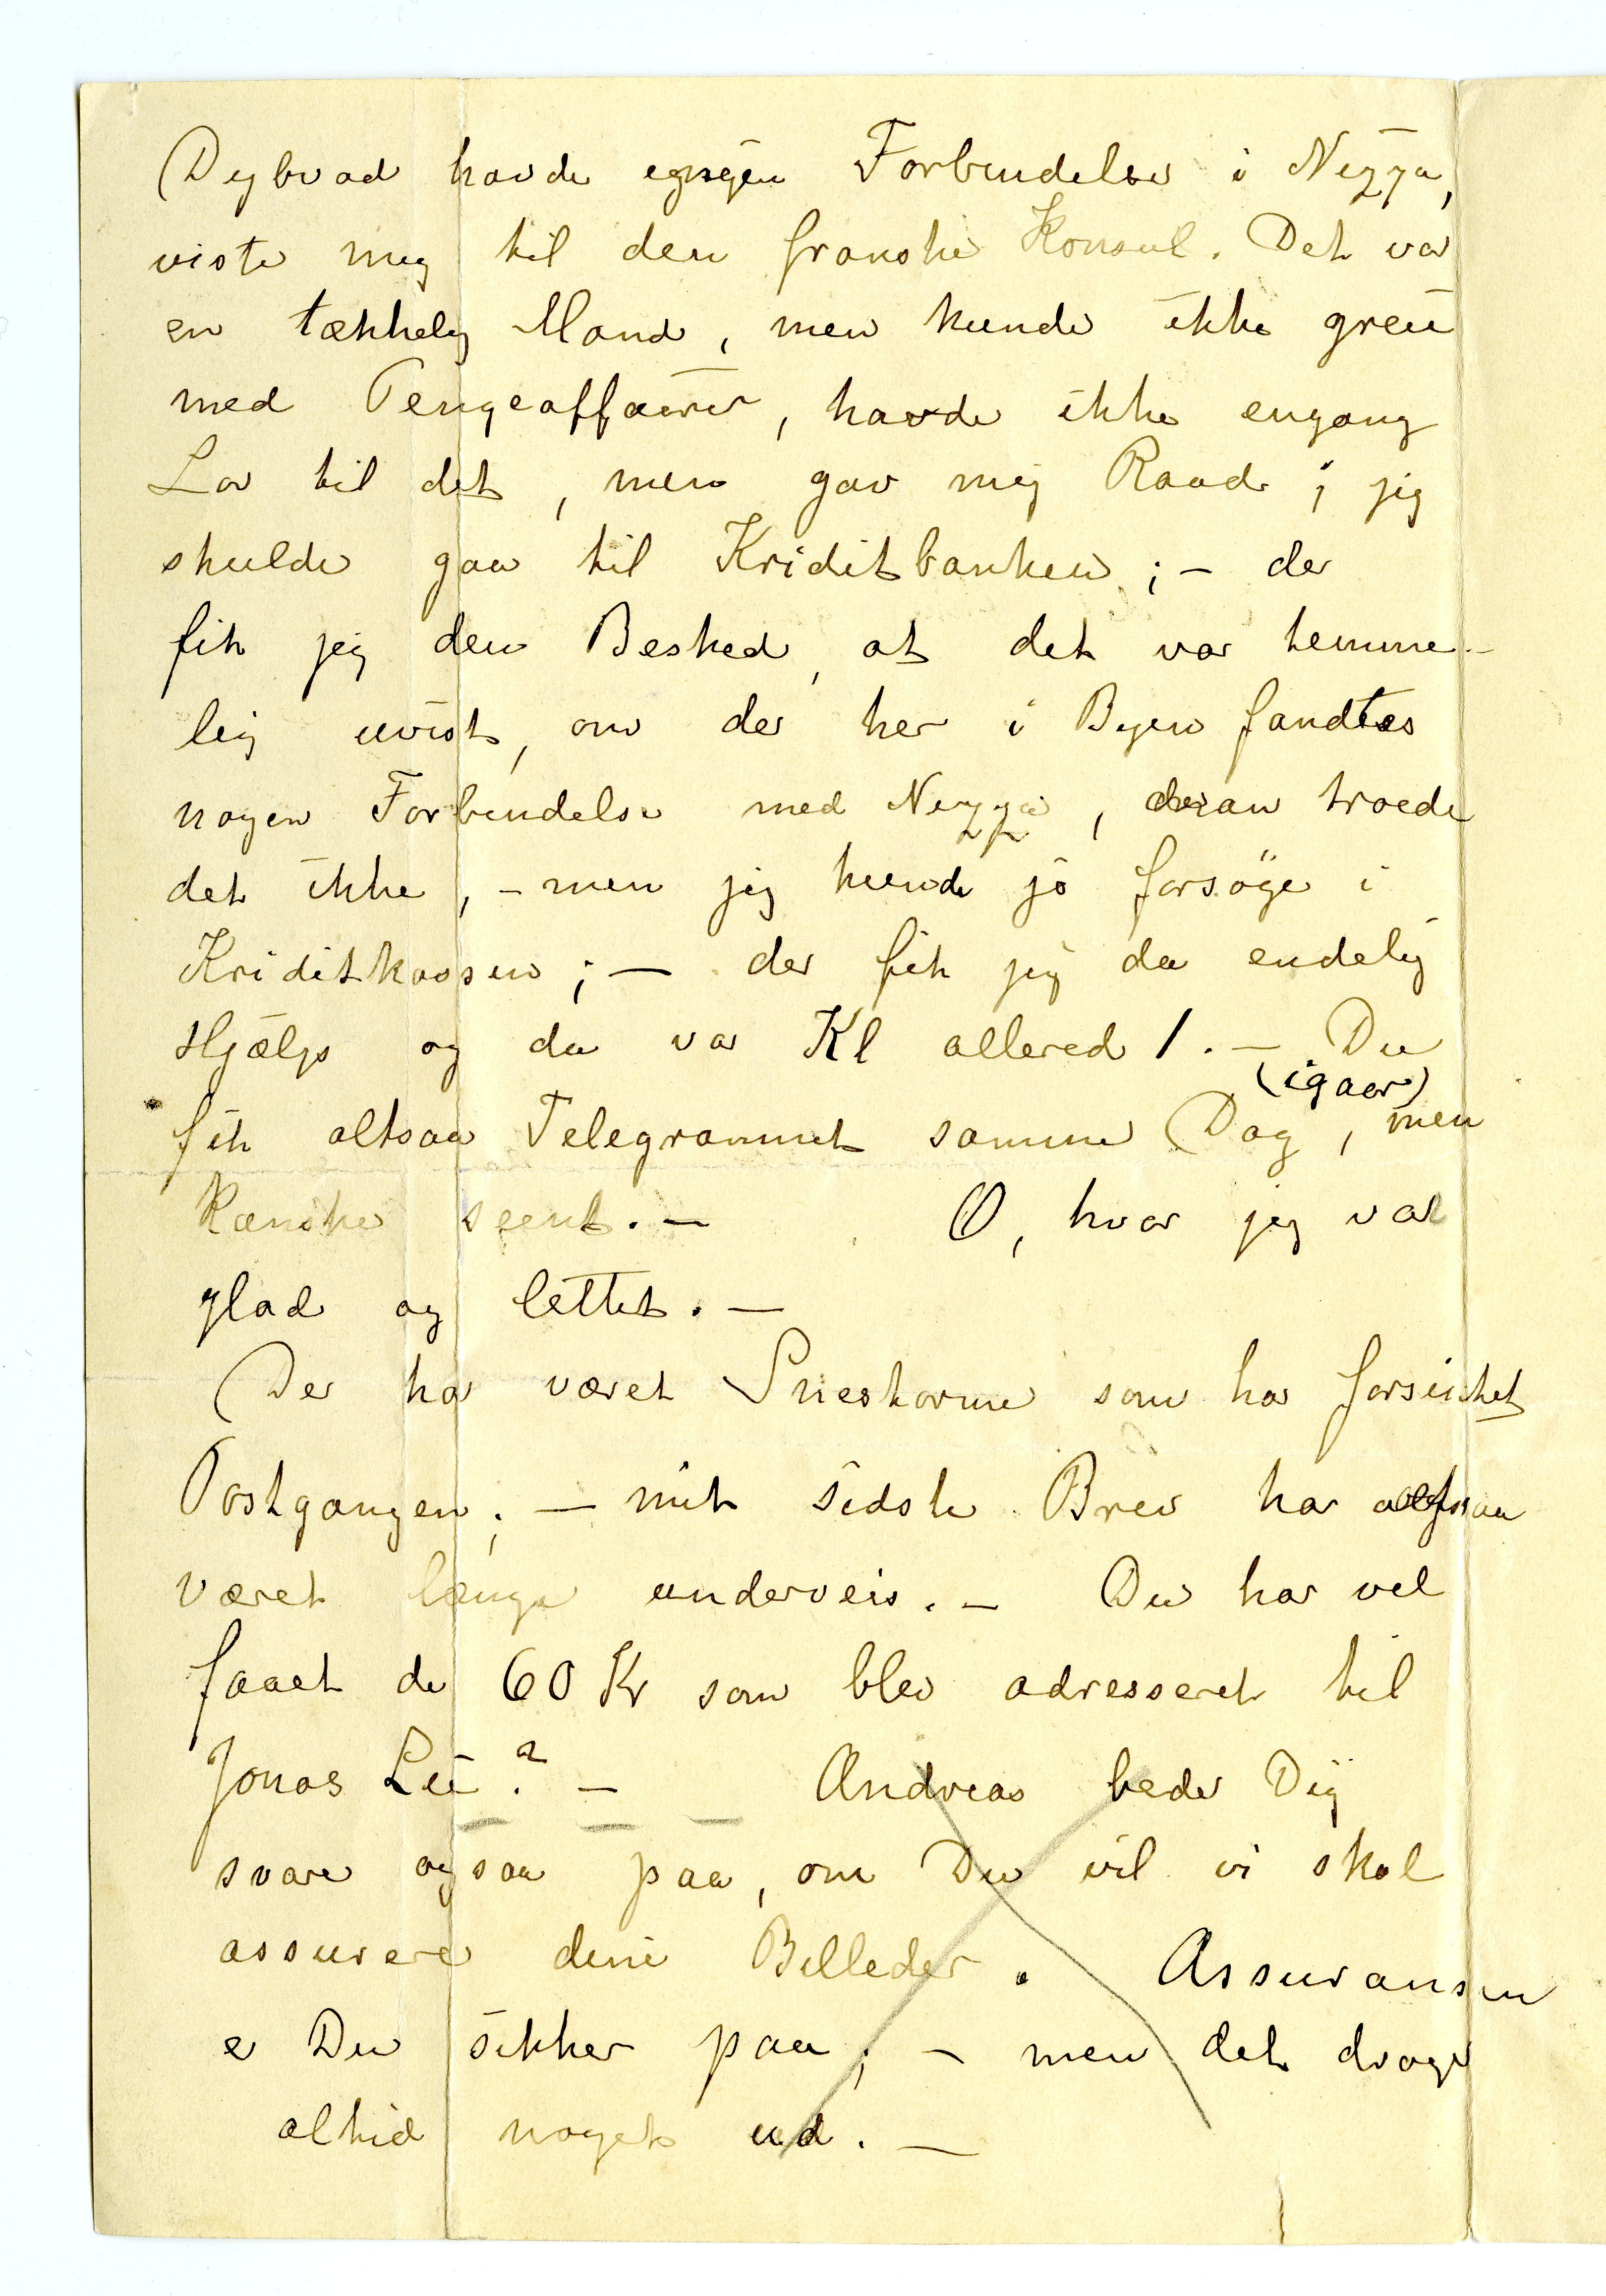 Dybvad havde ingen Forbindelse i Nizza,
viste mig til den franske Konsul. Det var
en tækkelig Mand, men kunde ikke greie
med Pengeaffairer, havde ikke engang
Lov til det, men gav mig Raad; jeg
skulde gaa til Kriditbanken; – der
fik jeg den Besked, at det var temme-
lig uvist, om der her i Byen fandtes
nogen Forbindelse med Nizza, troede
det ikke, – men jeg kunde jo forsøge i
Kriditkassen; – der fik jeg da endelig
Hjælp og da var Kl allered 1. – Du
(igaar)
fik altsaa Telegrammet samme Dag, men
kanske seent. – O, hvor jeg var
glad og lettet. –
Der har været Snestorme som har forsinket
Postgangen; – mit sidste Brev har altsaa
været længe underveis. – Du har vel
faaet de 60 Kr som blev adresseret til
Jonas Lie? – Andreas beder Dig
svare ogsaa paa, om Du vil vi skal
assurere dine Billeder. Assuransen
er Du sikker paa; – men det drager
altid noget ud. –